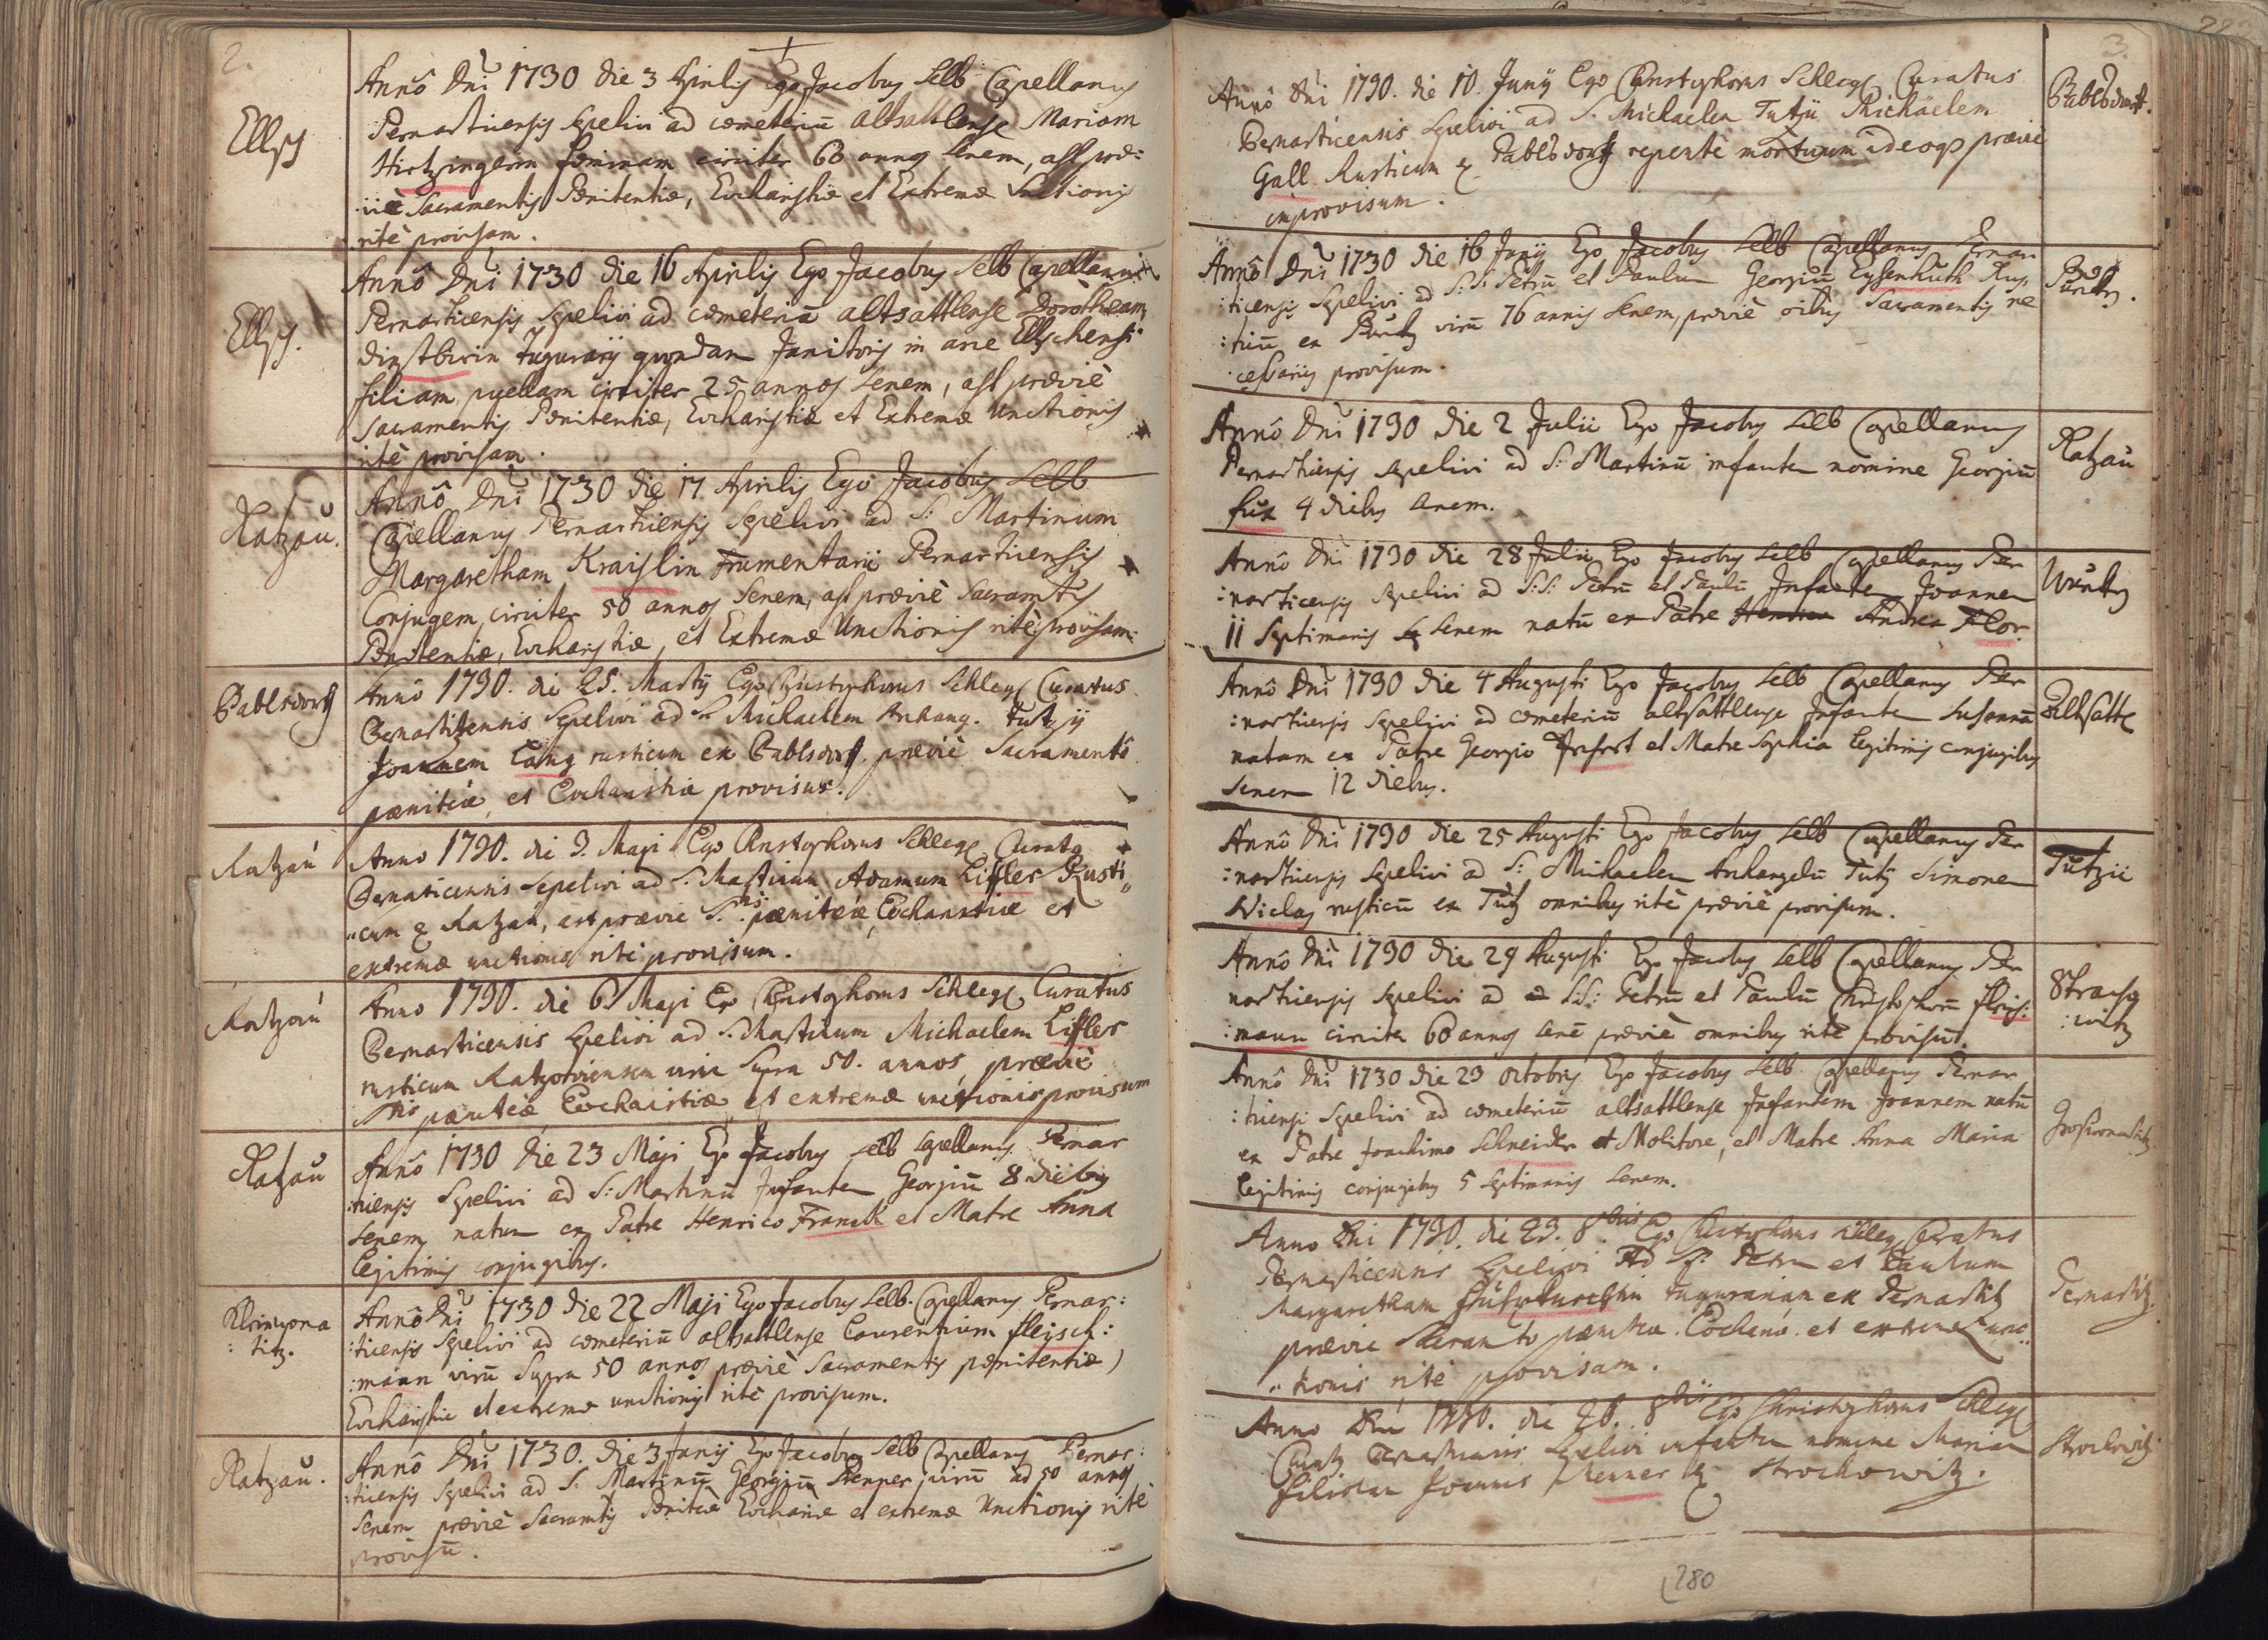 2.
Ellsch
Annô Dni 1730 die 3 Aprilis Ego Jacobus Selb Capellanus
Pernarticensis sepelivi ad cœmeteriū altsattlense Mariam
Hirtzingerin fœminam circiter 60 annos senem, ast præ:
:viè Sacramentis Pœnitentiæ, Eucharistiæ et Extremæ Unctionis
ritè provisam.
Ellsch.
Annô Dni 1730 die 16 Aprilis Ego Jacobus Selb Capellanus
Pernarticensis Sepelivi ad cœmeteriū altsattlense Dorotheam
Tugurarij quondam Janitoris in arce Ellschensi
filiam, puellam circiter 25 annos senem, ast præviè
Sacramentis Pœnitentiæ, Eucharistiæ et Extremæ Unctionis
ritè provisam.
Katzau.
Annô Dni 1730 die 17 Aprilis Ego Jacobus Selb
Capellanus Pernarticensis Sepelivi ad S: Martinum
Margaretham Kraislin Frumentarii Pernarticensis
Conjugem circiter 50 annos Senem, ast præviè Sacramtis
Pœnitentiæ, Eucharistiæ, et Extremæ Unctionis ritè provisam.
Pablsdorff
Annô 1730. die 25. Martij Ego Christophorus Schlegl Curatus
Bernarticensis Sepelivi ad S. Michaelem Archang. Tutzij
Joannem Lang rusticum ex Pablsdorff. præviè Sacramentô
pœnitêiæ, et Eucharistiæ provisus.
Katzau
Anno 1730. die 3. Maji Ego Christophorus Schlegl Curatus
Bernaticensis sepelivi ad S. Martinum Adamum Liffler Rusti
"cum ex Katzau, ast prævie S.tis pœnitêiæ, Eucharistiæ et
extremæ unctionis rite provisum.
Katzau
Anno 1730. die 6 Maji Ego Christophorus Schlegl Curatus
Bernarticensis Sepelivi ad S. Martinum Michaelem Liffler
rusticum Katzoviensem viru Supra 50. annos, præviè
Stis pœnitêiæ Eucharistiæ et extremæ unctionis provisum
Katzau
Annô 1730 die 23 Maji Ego Jacobus Selb Capellanus Pernar
:ticensis Sepelivi ad S: Martinū Infantem Georgiū 8 diebus
senem natum ex Patre Henrico Franck et Matre Anna
legitimis conjugibus.
Kleinwona
:titz.
Annô Dni 1730 die 22 Maji Ego Jacobus Selb. Capellanus Pernar:
:ticensis Sepelivi ad cœmeteriū altsattlense Laurentium fleisch:
:mann virū Supra 50 annos præviè Sacramentis pœnitentiæ,
Eucharistiæ et extremæ unctionis ritè provisum.
Katzau.
Annô Dni 1730. die 3 Junij Ego Jacobus Selb Capellanus Pernar:
:ticensis Sepelivi ad S. Martinū Georgiū Renner virū ad 50 annos
Senem præviè Sacramtis Pœnitêæ Euchariæ et extremæ Unctionis ritè
provisū.
3.
Annô Dni 1730. die 10. Junij Ego Christophorus Schlegl Curatus
Bernarticensis Sepelivi ad S. Michaelem Tutzii Michäelem
Gall Rusticum ex Pablsdorff repentè mortuum ideoqs prævie
improvisum.
Pablsdorff.
Annô Dni 1730 die 16 Junij Ego Jacobus Selb Capellanus Pernar
:ticensis Sepelivi ad S:S: Petrū et Paulum Georgiū Eysenhuth Rus,
:ticū ex virū 76 annis senem, præviè oibus Sacramentis ne
:cessariis provisum.
Annô Dni 1730 die 2 Julii Ego Jacobus Selb Capellanus
Pernarticensis sepelivi ad S: Martinū infantem nomine Georgiū
fux 4 diebus senem.
Katzau
Annô Dni 1730 die 28 Julii Ego Jacobus Selb Capellanus Per
:narticensis Sepelivi ad S:S: Petrū et Paulū Infantem Joannem
11 Septimanis senem natū ex Patre Andrea Flor.
Annô Dni 1730 die 4 Augusti Ego Jacobus Selb Capellanus Per
:narticensis Sepelivi ad cœmeteriū altsattlense Infantem Susannā
natam ex Patre Georgio et Matre Sophia legitimis conjugibus
Senem 12 diebus.
Altsattl
Annô Dni 1730 die 25 Augusti Ego Jacobus Selb Capellanus Per
:narticensis Sepelivi ad S: Michaelem Archangelū Tutzij Simonem
Niclas rusticū ex Tutz omnibus ritè præviè provisum.
Tutzii
Annô Dni 1730 die 29 Augusti Ego Jacobus Selb Capellanus Per
narticensis Sepelivi ad S.S: Petrū et Paulū Christophorū fleis:
:mann circiter 60 annos senē præviè omnibus ritè provisū.
Annô Dni 1730 die 23 octobris Ego Jacobus Selb. Capellanus Pernar
:ticensis Sepelivi ad cœmeteriū altsattlense Infantem Joannem natū
ex Patre Joachimo Schneider Molitore, et Matre Anna Maria
legitimis conjugibus 5 Septimanis Senem.
Anno Dni 1730. die 23. 8bris Ego Christophorus Schlegl Curatus
Bernarticensis Sepelivi Ad SS. Petrum et Paulum
Margaretham Tugurariam ex Pernartitz
prævie Sacramto pœnitêæ. Eucharis. et extremæ unc
"tionis ritè provisam.
Pernartitz.
Anno Dni 1730. die 26. 8bris Ego Christophorus Schlegl
Sepelivi infantem nomine Mariam
filiolam Joannis Renner ex Strochowitz.
Strochowitz
280